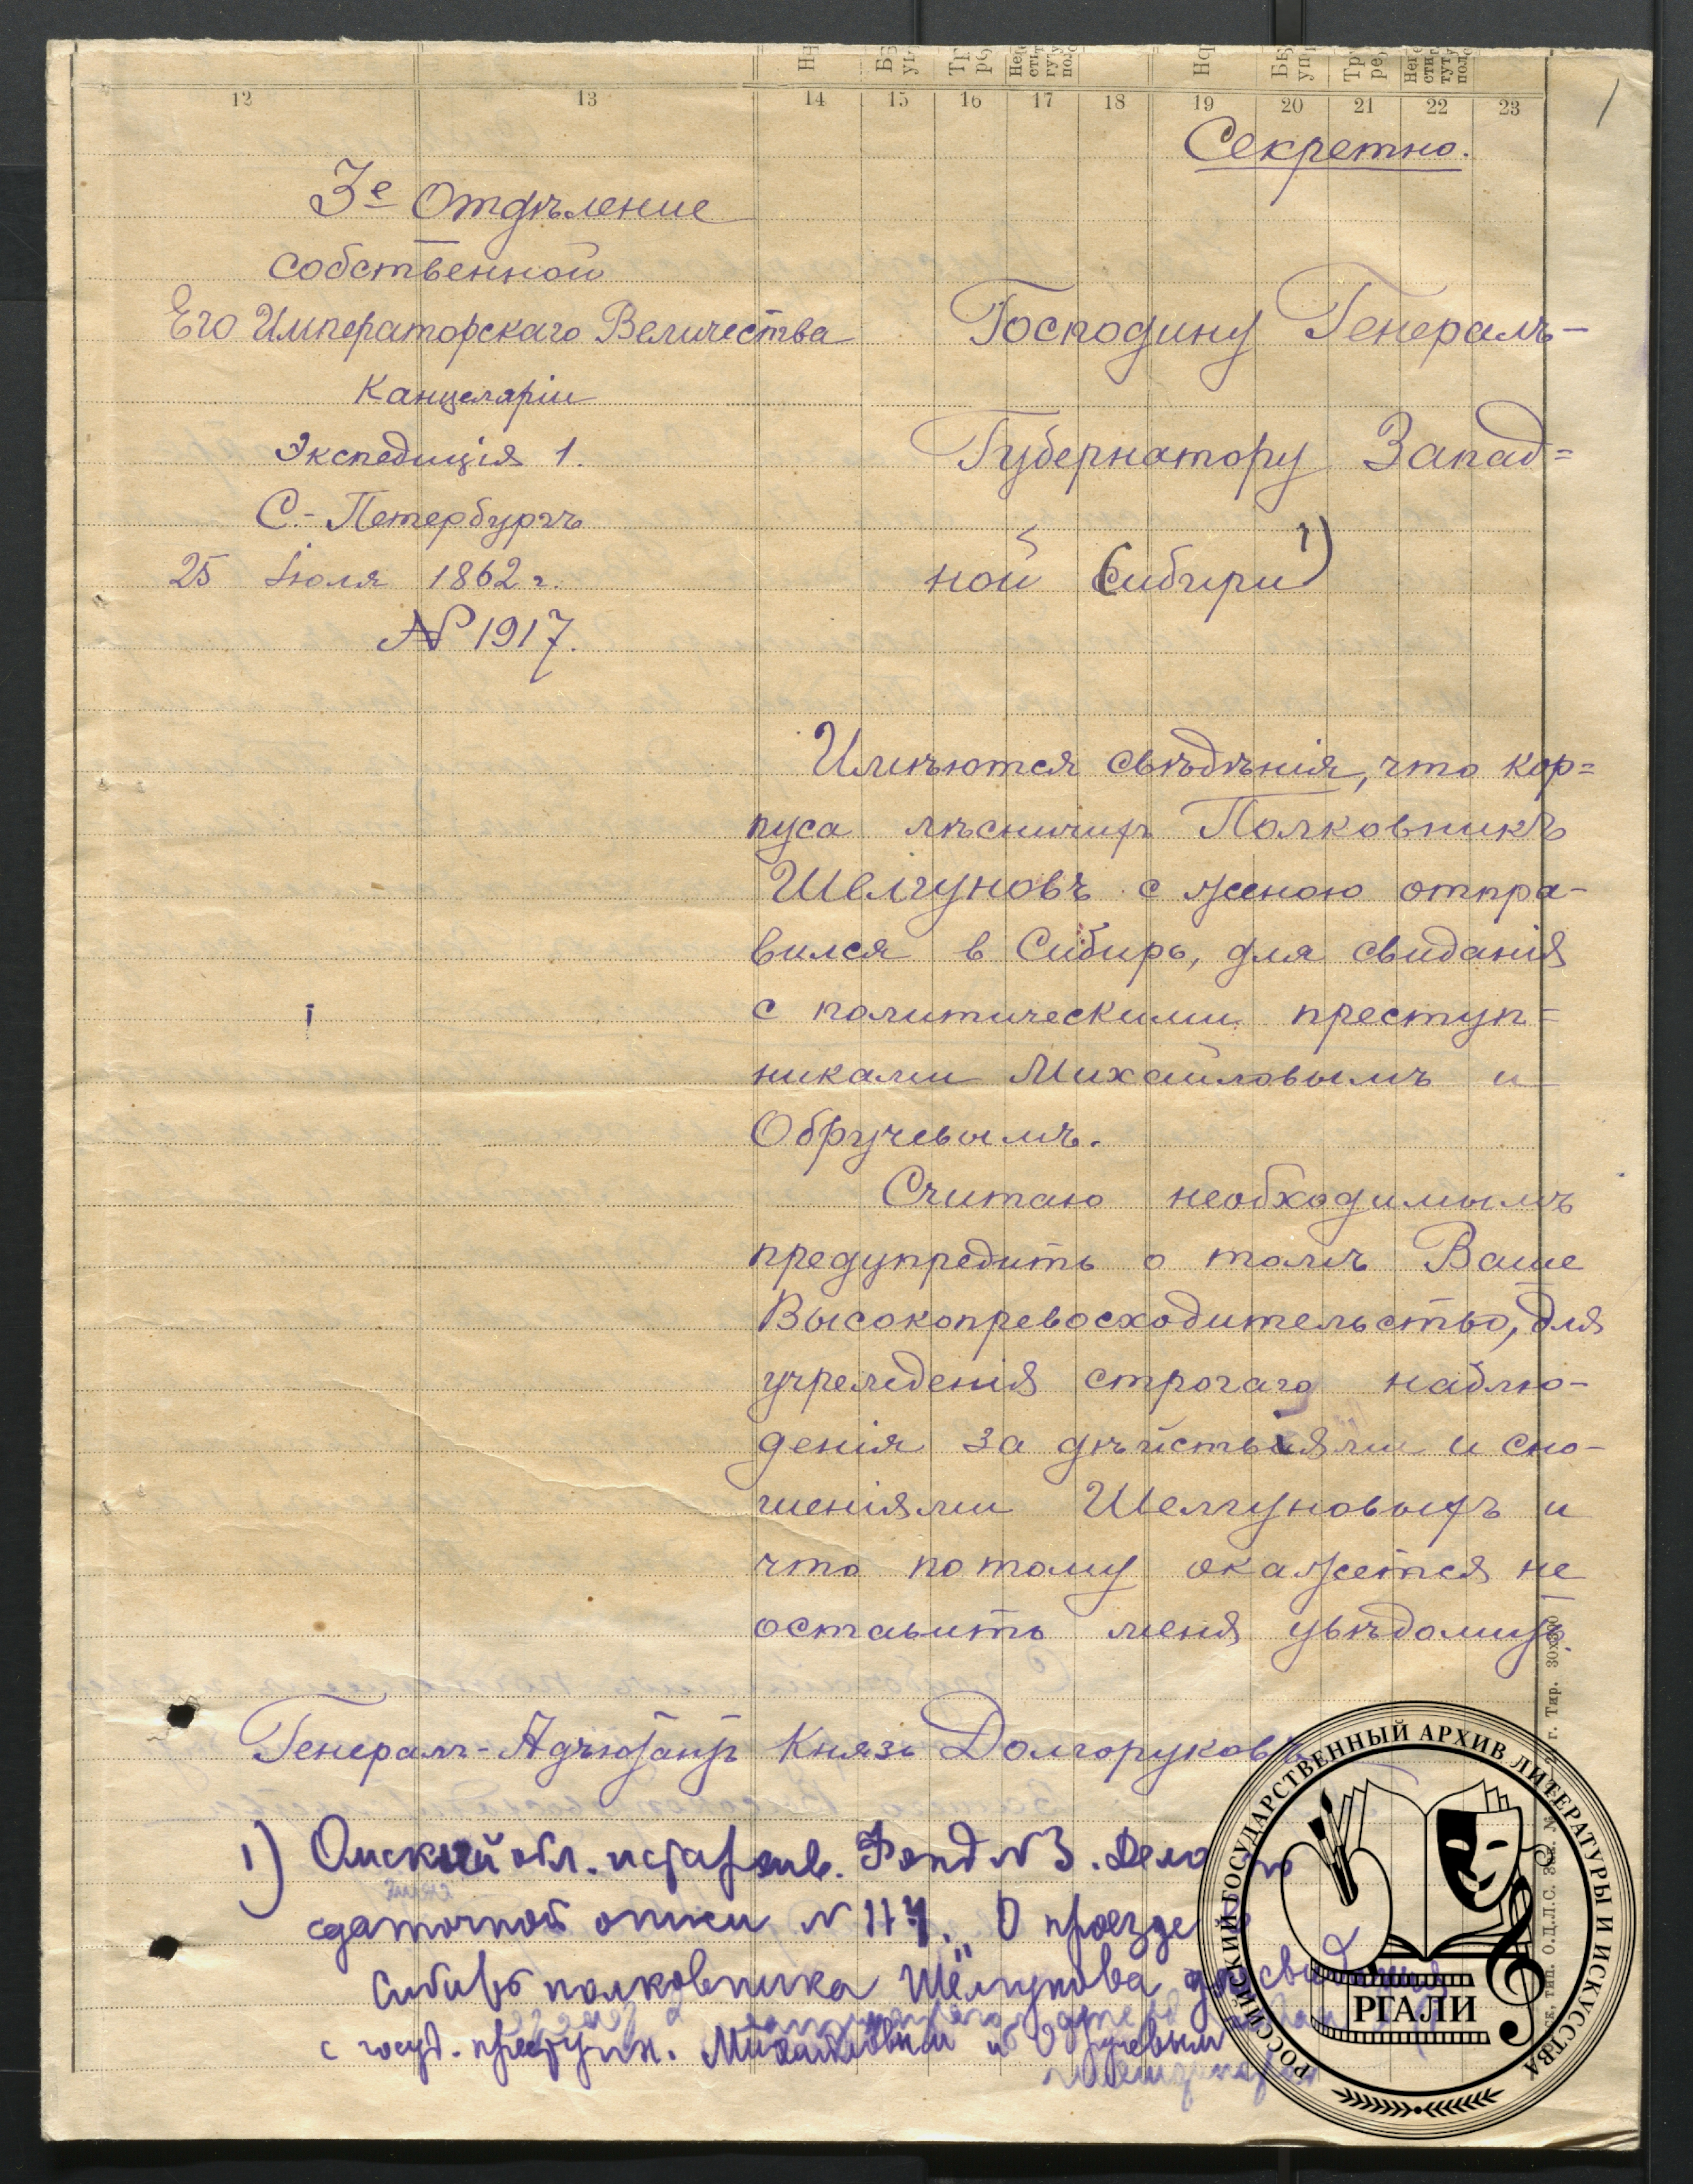 12 13 14 15 16 17 18 19 20 21 22 23
1
Секретно.
3е Отдѣленіе
собственной
Его Императорскаго Величества
Канцеляріи
Экспедиція 1.
С.-Петербургъ
25 Іюля 1862 г.
№ 1917.
Господину Генералъ-
Губернатору Запад=
ной Сибири 1)
Имѣются свѣдѣнія, что кор=
пуса лѣсничихъ Полковникъ
Шелгуновъ с женою отпра-
вился в Сибирь, для свиданія
с политическими преступ=
никами Михайловымъ и
Обручевымъ.
Считаю необходимымъ
предупредить о томъ Ваше
Высокопревосходительство, для
учрежденія строгаго наблю-
денія за дѣйствіями и сно-
шеніями Шелгуновыхъ и
что потому окажется не
оставить меня увѣдомить.
Генералъ-Адъютантъ Князь Долгоруковъ
1) Омский обл. истархив. Фонд №3. Дело по
сдаточной описи № 114. „О проезде в
Сибирь полковника Шелгунова для свидания
с госуд. преступн. Михайловым и Обручевым
РОССИЙСКИЙ ГОСУДАРСТВЕННЫЙ АРХИВ ЛИТЕРАТУРЫ И ИСКУССТВА
РГАЛИ